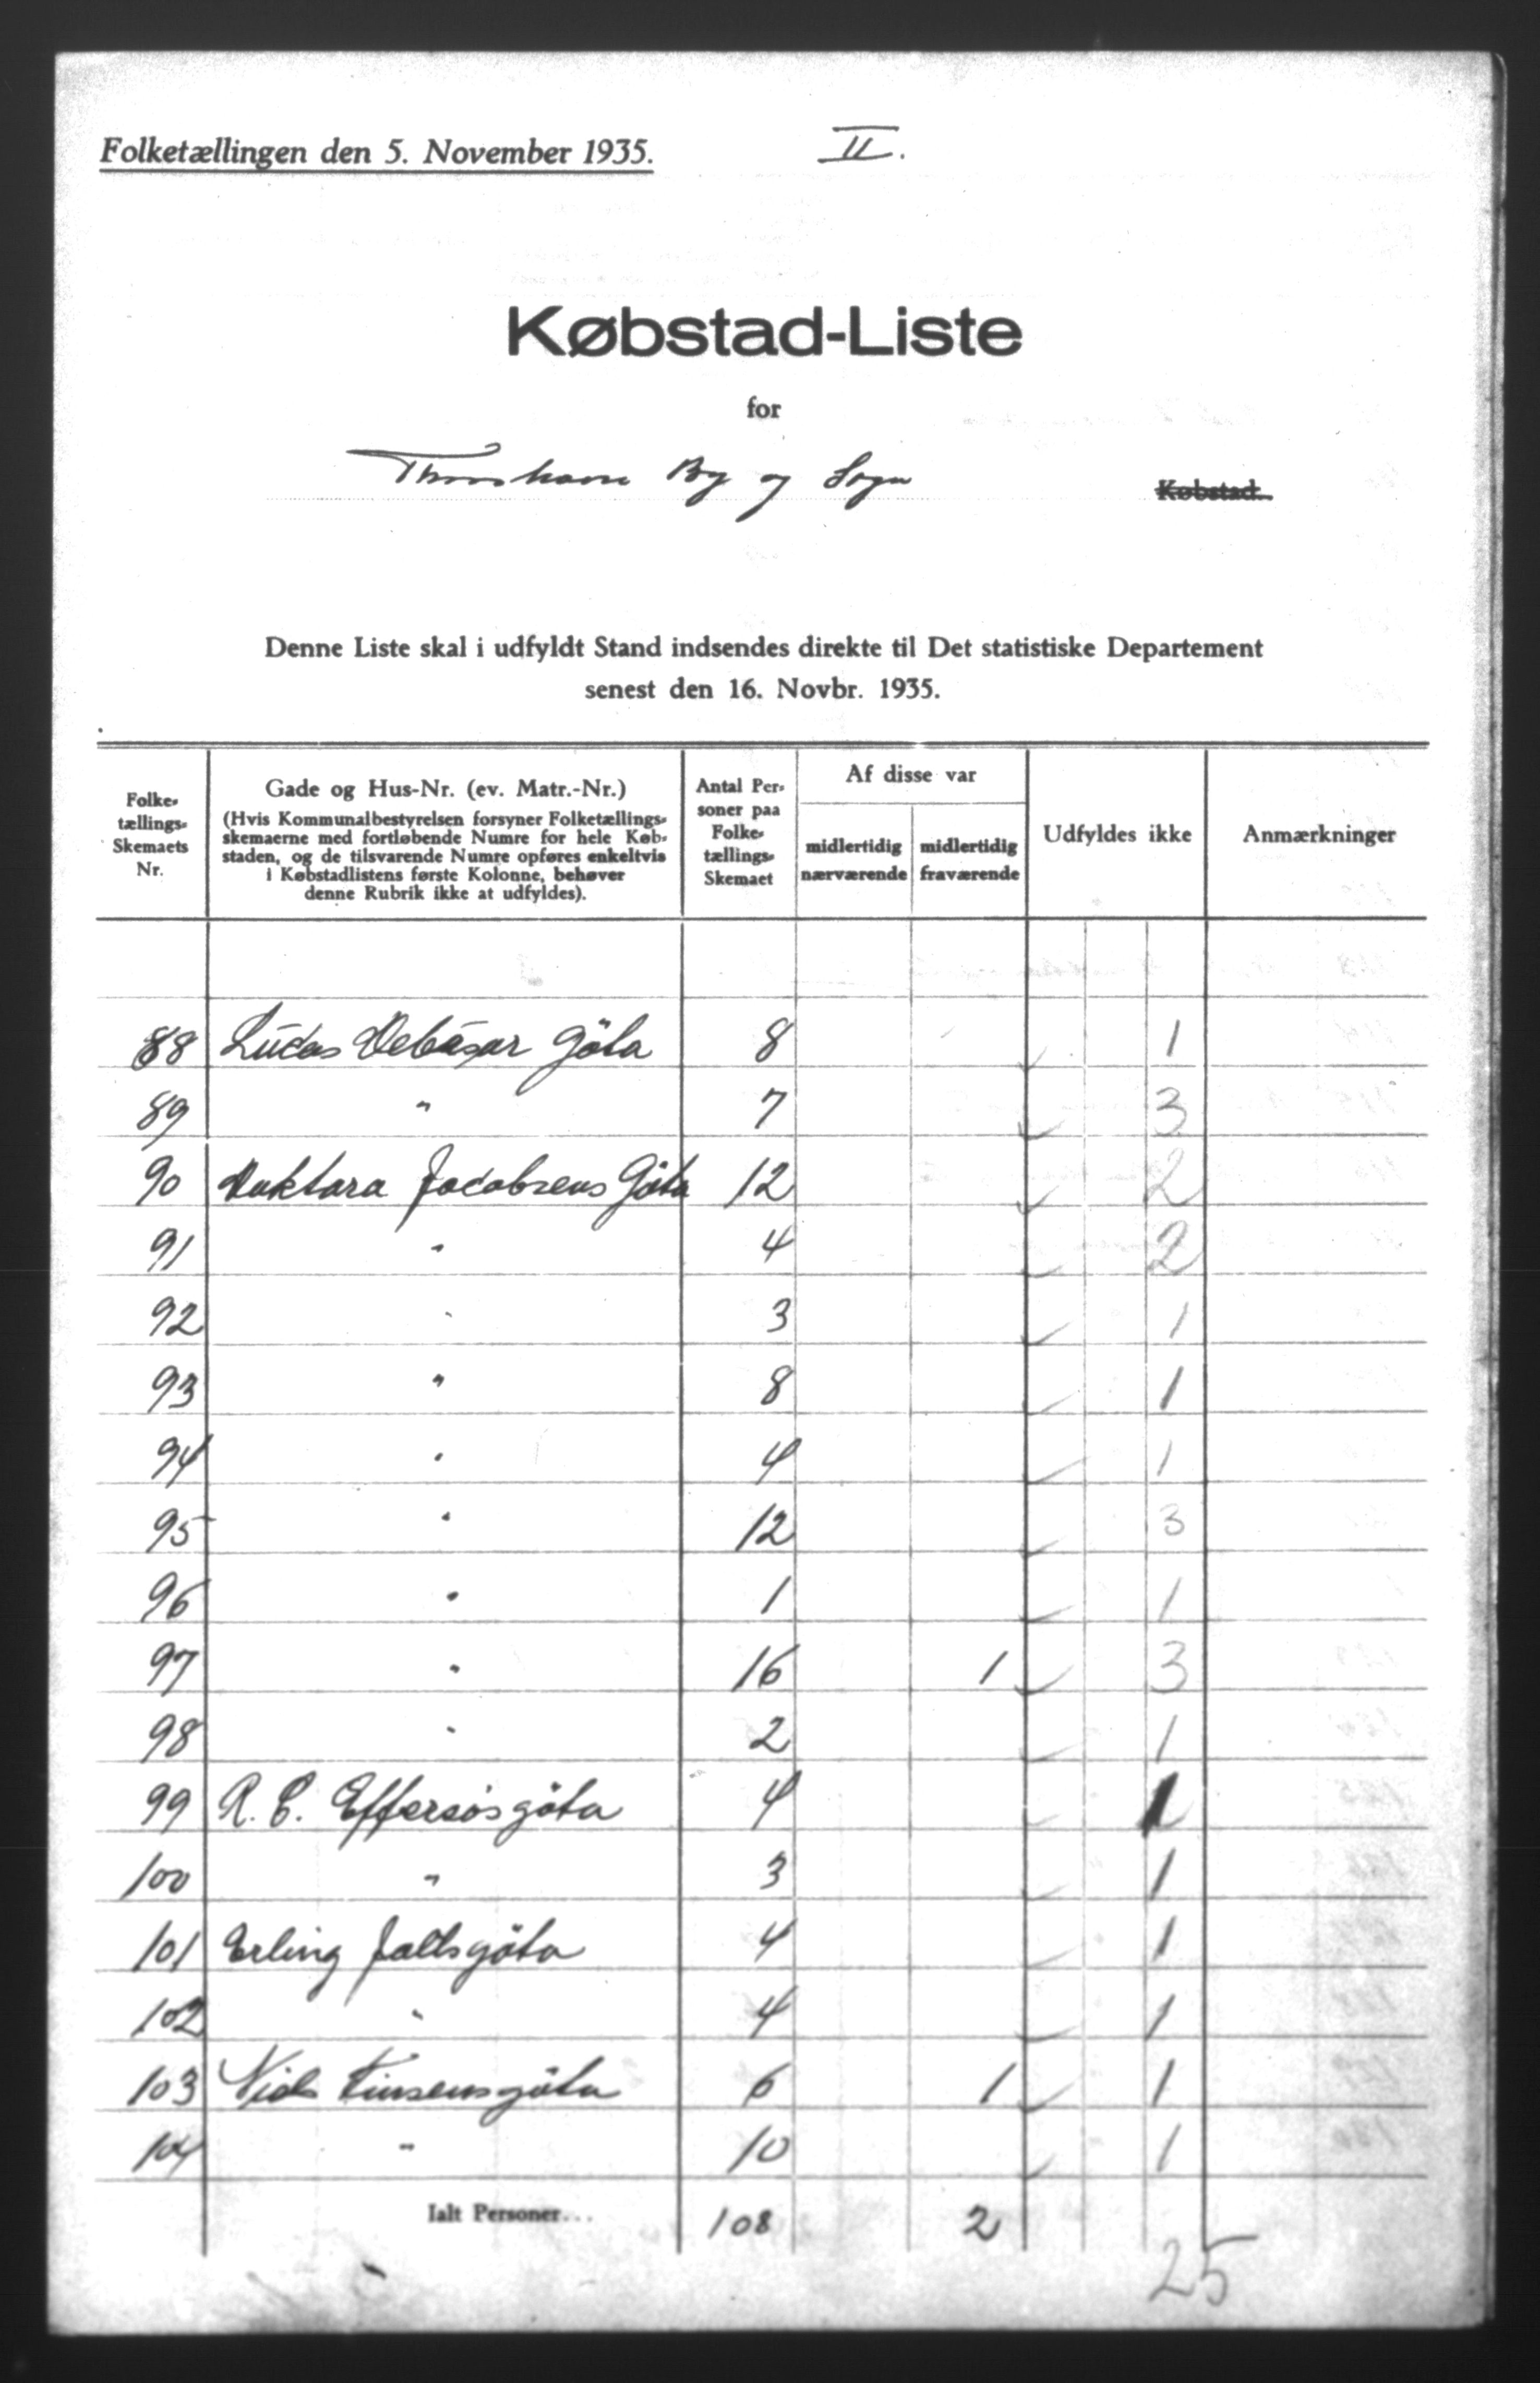 Folketællingen den 5. November 1935.
II.
Købstad-Liste
for
Thorshavn By og Sogn Købstad.
Denne Liste skal i udfyldt Stand indsendes direkte til Det statistiske Departement
senest den 16. Novbr. 1935.
Folke-
tællings-
Skemaets
Nr.
Gade og Hus-Nr. (ev. Matr.-Nr.)
(Hvis Kommunalbestyrelsen forsyner Folketællings-
skemaerne med fortløbende Numre for hele Køb-
staden, og de tilsvarende Numre opføres enkeltvis
i Købstadlistens første Kolonne, behøver
denne Rubrik ikke at udfyldes).
Antal Per-
soner paa
Folke-
tællings-
Skemaet
Af disse var
midlertidig
nærværende
midlertidig
fraværende
Udfyldes ikke
Anmærkninger
88 Lucas Debesar Göta 8 1
89 " 7 3
90 Doktara Jacobsens Göta 12 2
91 " 4 2
92 " 3 1
93 " 8 1
94 " 4 1
95 " 12 3
96 " 1 1
97 " 16 1 3
98 " 2 1
99 R. C. Effersösgöta 4 1
100 " 3 1
101 Erling Jallsgöta 4 1
102 " 4 1
103 Niels Finsensgöta 6 1 1
104 " 10 1
Ialt Personer... 108 2
25